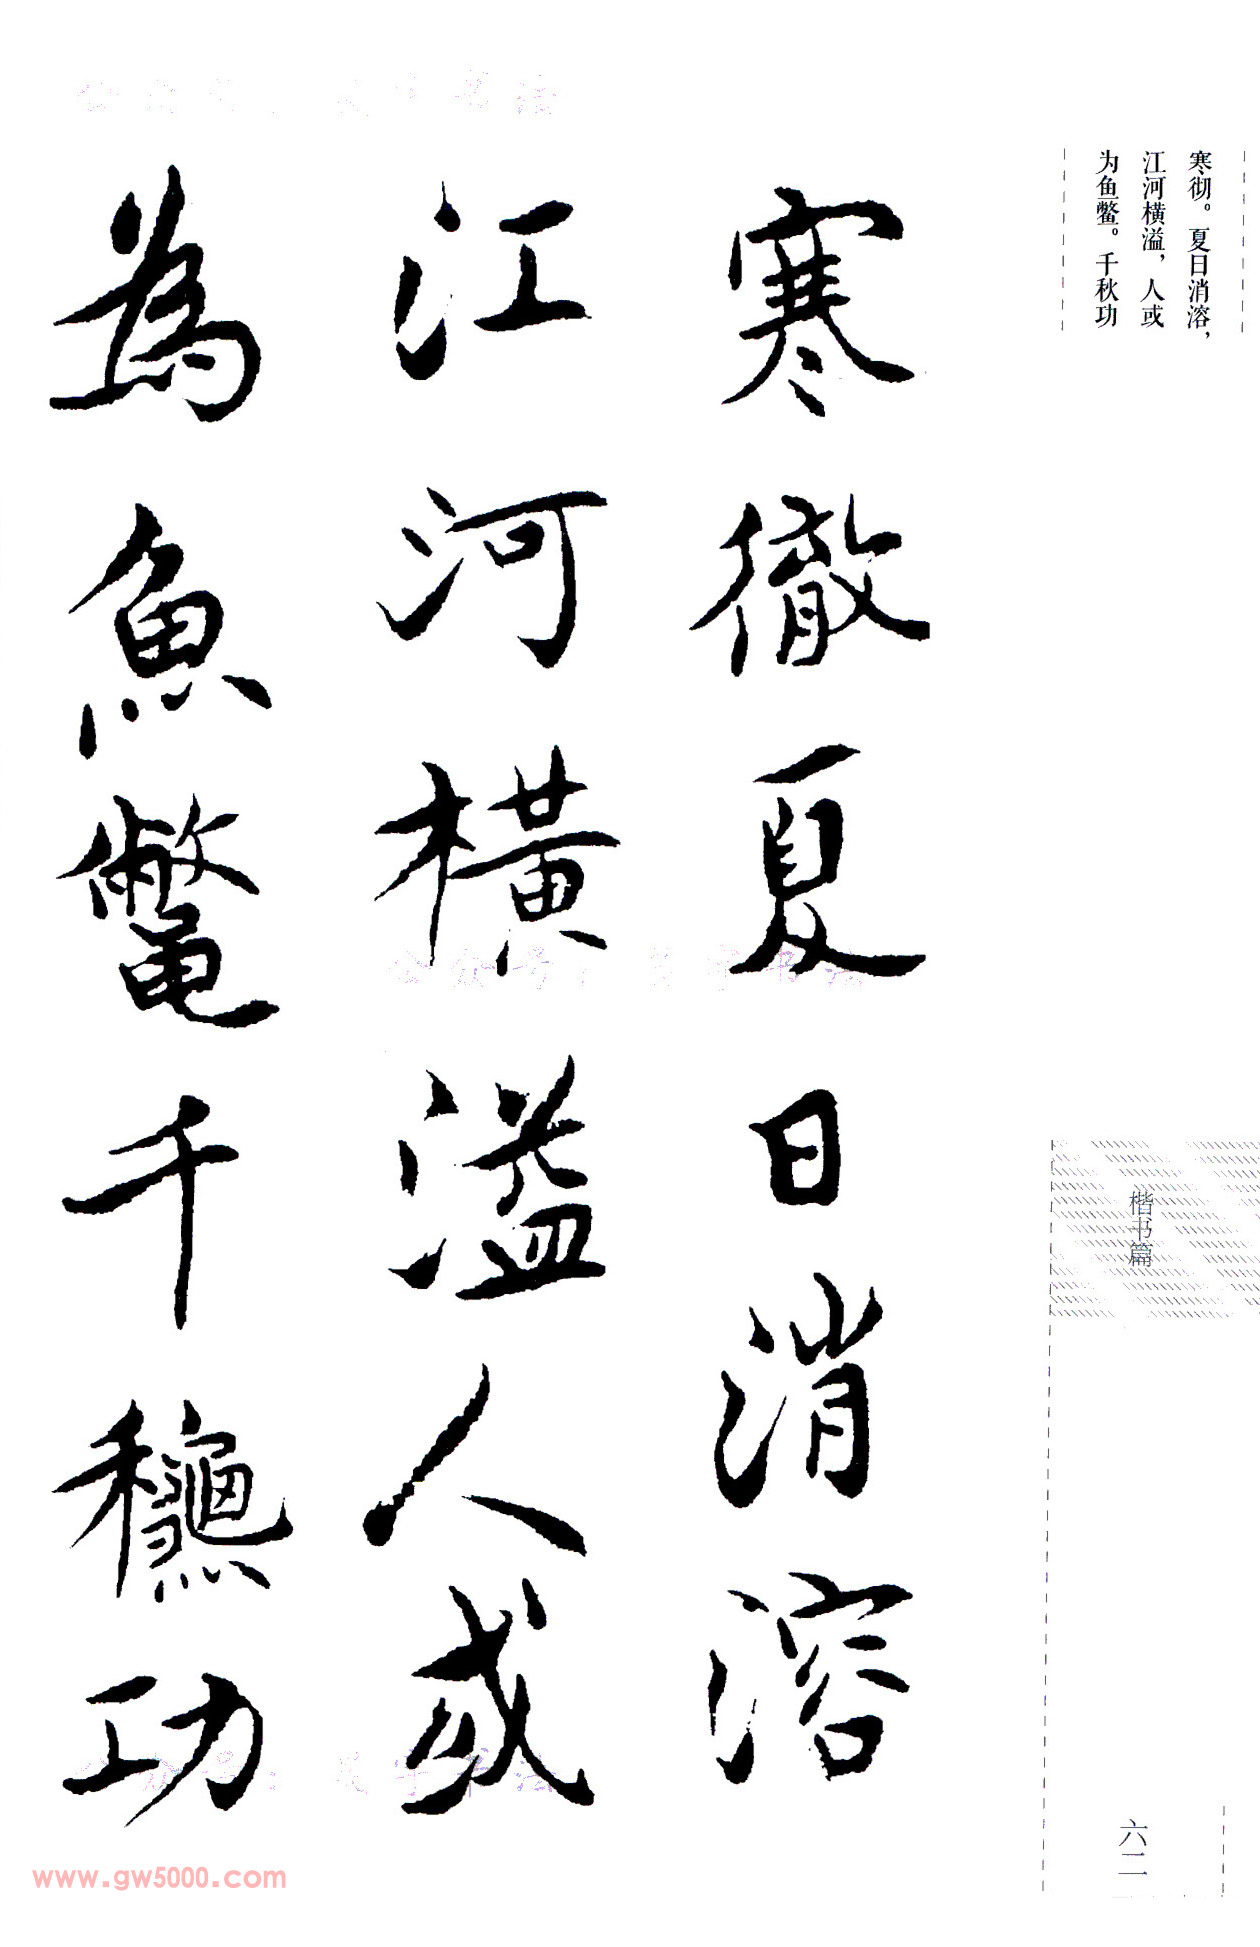 寒彻。夏日消溶，
江河横溢，人或
为鱼鳖。千秋功
寒徹夏日消溶
江河橫溢人或
為魚鼈千龝功
楷书篇
六二
www.gw5000.com